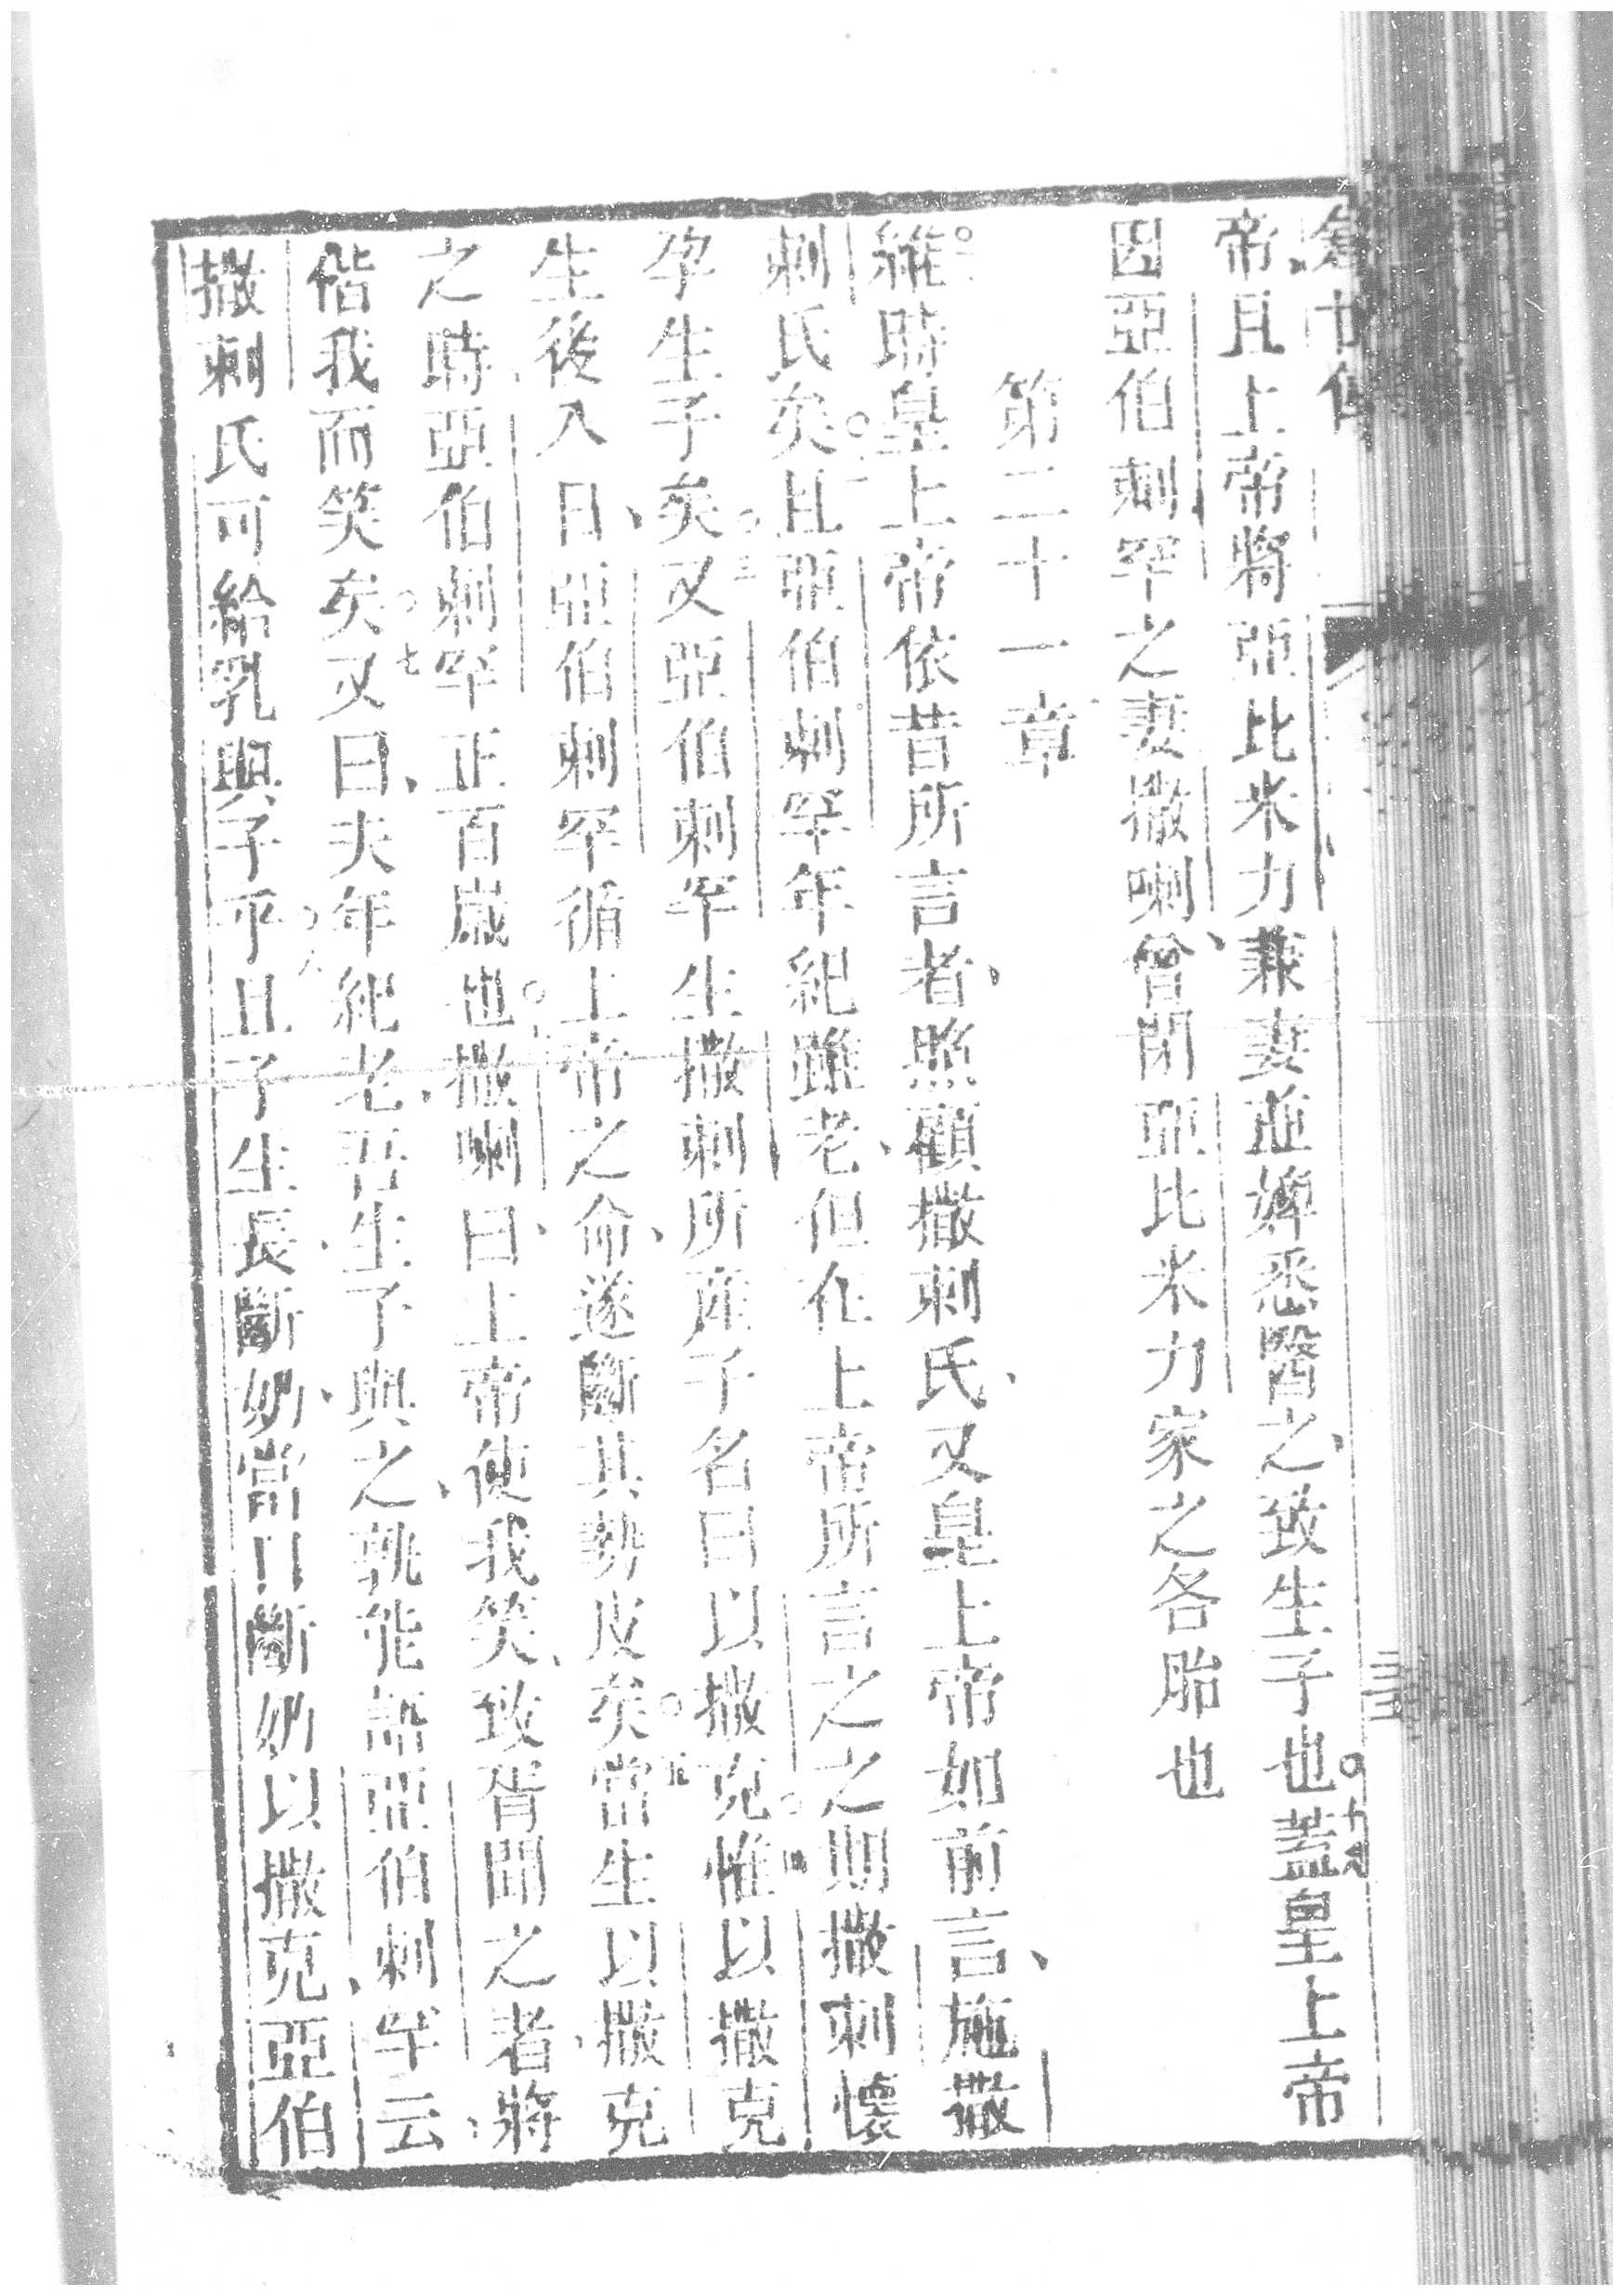 帝且上帝將亞比米力兼妻並婢悉醫之致生子也。十八蓋皇上帝
因亞伯剌罕之妻撒喇、曾閉亞比米力家之各胎也
第二十一章
維時皇上帝依昔所言者、照顧撒剌氏、又皇上帝如前言、施撒
剌氏矣。二且亞伯剌罕年紀雖老、但在上帝所言之之期撒剌懷
孕生子矣。三又亞伯剌罕生撒剌所產子名曰以撒克。四惟以撒克
生後八日、亞伯剌罕循上帝之命、遂斷其勢皮矣。五當生以撒克
之時、亞伯剌罕正百歲也。六撒喇曰、上帝使我笑、致胥聞之者、將
偕我而笑矣。七又曰、夫年紀老、吾生子與之、孰能語亞伯剌罕云、
撒剌氏可給乳與子乎。八且子生長、斷奶、當日斷奶以撒克、亞伯